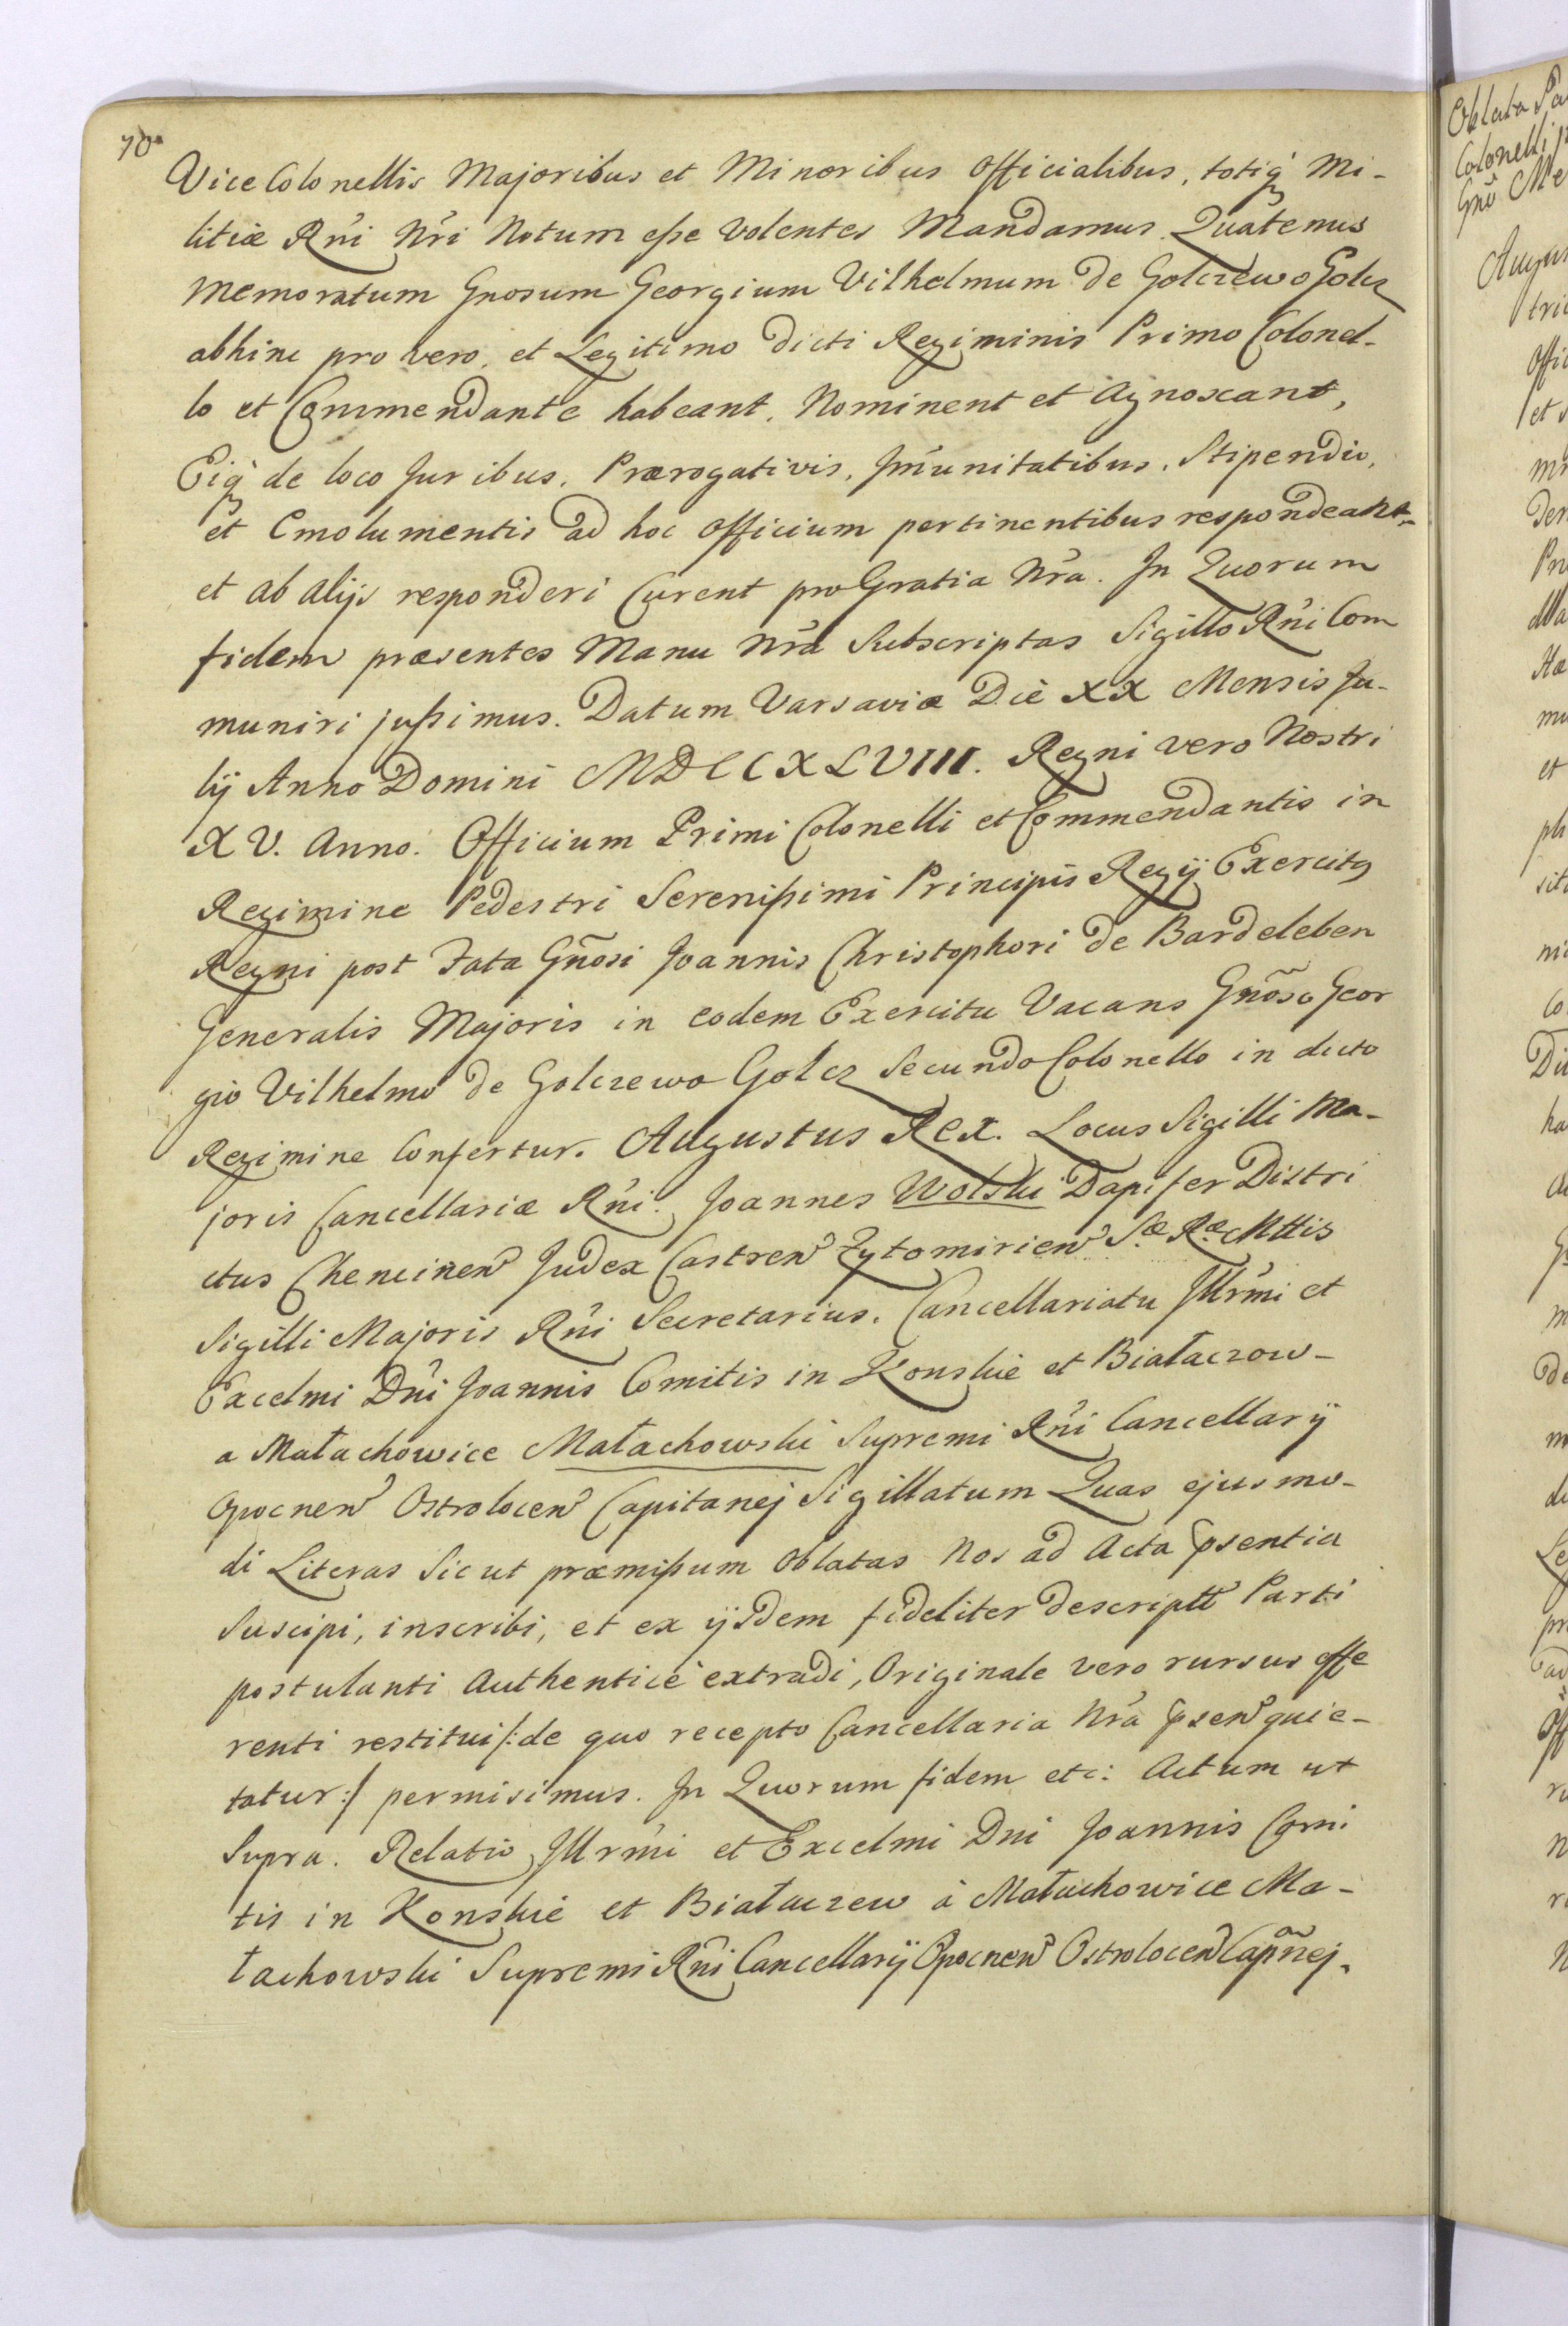 70
Vice Colonellis Majoribus et Minoribus Officialibus, totiq́ Mi-
litiæ Rńi Nŕi Notum eſse Volentes Mandamus. Quatenus
Memoratum Gnosum Georgium Vilhelmum de Golczewo Golcz
abhinc pro vero, et Legitimo dicti Regiminis Primo Colonel-
lo et Commendante habeant, Nominent et Agnoscant,
Eiq́ de loco Juribus, Prærogativis, Jm̃unitatibus, Stipendio,
et Emolumentis ad hoc Officium pertinentibus respondeant,
et ab alijs responderi Curent pro Gratia Nŕa. Jn Quorum
fidem præsentes Manu Nŕa Subscriptas Sigillo Rńi Com
muniri jußimus. Datum Varsaviæ Die XX Mensis Ju-
lÿ Anno Domini MDCCXLVIII. Regni vero Nostri
XV. Anno. Officium Primi Colonelli et Commendantis in
Regimine Pedestri Serenißimi Principis Regÿ Exercitg
Regni post Fata Gñosi Joannis Christophori de Bardeleben
Generalis Majoris in eodem Exercitu Vacans Gñoso Geor
gio Vilhelmo de Golczewo Golcz Secundo Colonello in dicto
Regimine Confertur. Augustus Rex. Locus Sigilli Ma-
joris Cancellariæ Rńi. Joannes Wolski Dapifer Distri
ctus Chencinen Judex Castren Zytomirien Sæ Ræ Mttis
Sigilli Majoris Rńi Secretarius. Cancellariatu Jllrḿi et
Excelmi Dńi Joannis Comitis in Konskie et Białaczow-
a Małachowice Małachowski Supremi Rńi Cancellarÿ
Opocnen Ostrolocen Capitanej Sigillatum Quas ejusmo-
di Literas Sicut præmißum Oblatas Nos ad Acta psentia
Suscipi, inscribi, et ex ÿsdem fideliter descriptt Parti
postulanti Authenticè extradi, Originale vero rursus offe
renti restitui /: de quo recepto Cancellaria Nŕa psen quie-
tatur :/ permisimus. Jn Quorum fidem etc: Actum ut
Supra. Relatio Jllrḿi et Excelmi Dni Joannis Comi
tis in Konskie et Białaczew à Małachowice Ma-
łachowski Supremi Rńi Cancellarÿ Opocnen Ostrolocen Capñej.
Oblata
Colonelli
Gnõ
et
et